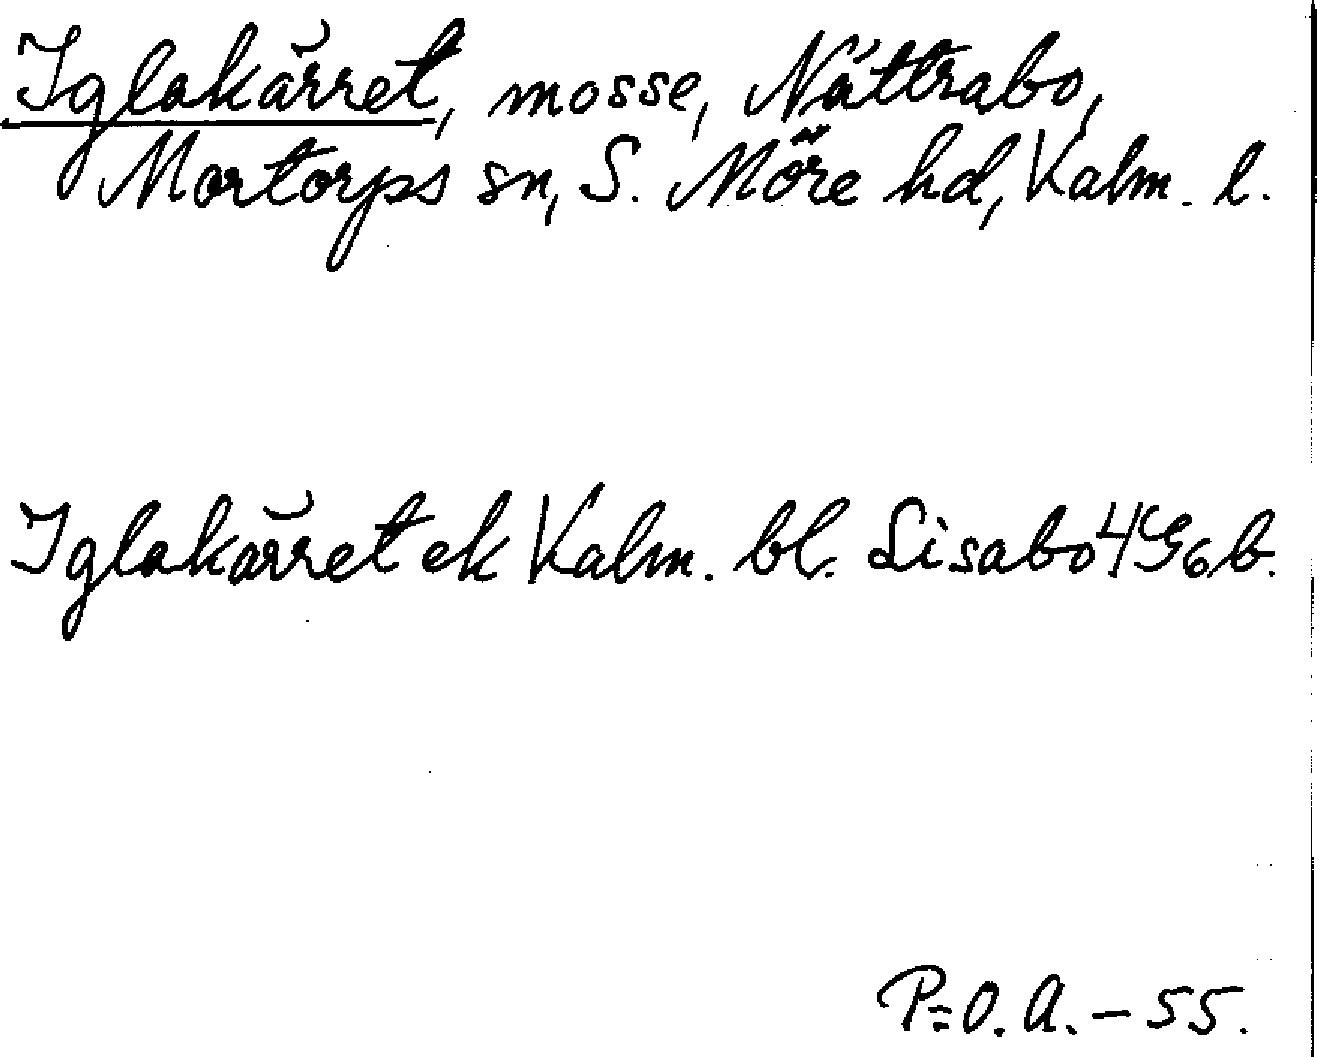 Iglakärret, mosse, Nättrabo,
Mortorps sn, S. Möre hd, Kalm. l.
Iglakärret ek Kalm. bl. Lisabo 4G6b.
P=O. A. - 55.